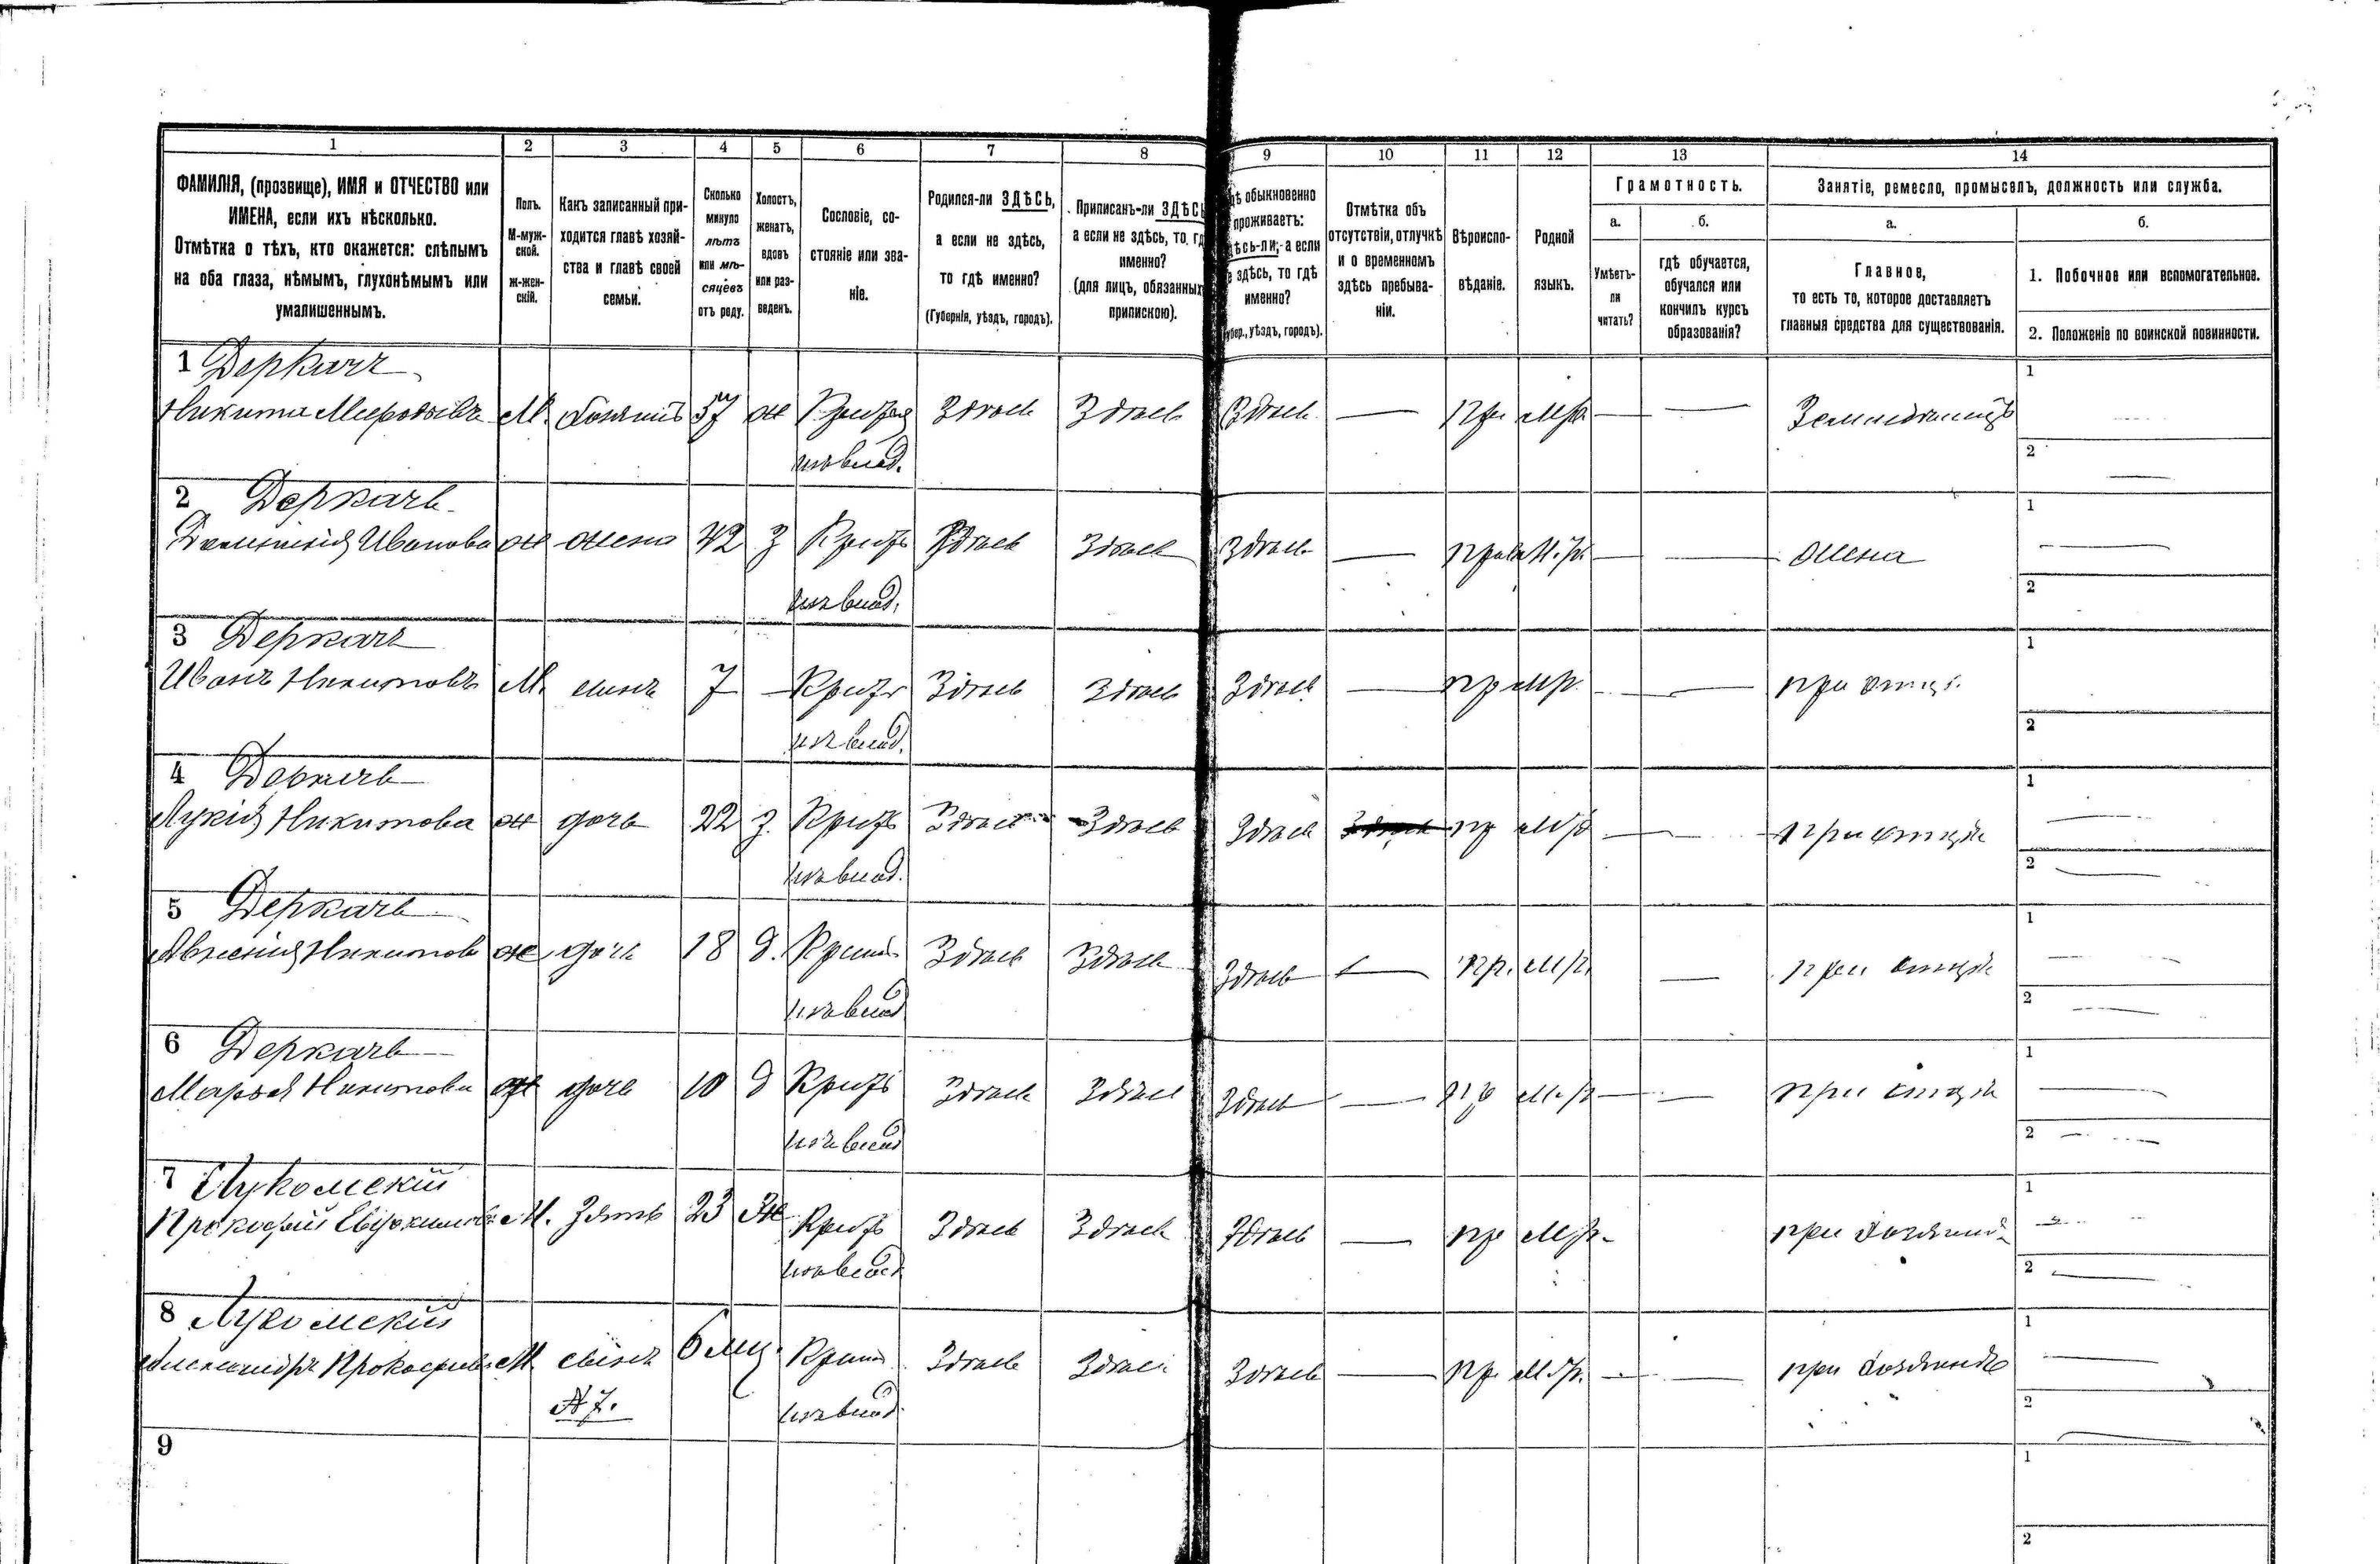 1 2 3 4 5 6 7 8 9 10 11 12 13 14
ФАМИЛІЯ, (прозвище), ИМЯ и ОТЧЕСТВО или
ИМЕНА, если ихъ нѣсколько.
Отмѣтка о тѣхъ, кто окажется: слѣпымъ
на оба глаза, нѣмымъ, глухонѣмымъ или
умалишеннымъ.
Полъ.
М-муж-
ской.
ж-жен-
скій.
Какъ записанный при-
ходится главѣ хозяй-
ства и главѣ своей
семьи.
Сколько
минуло
лѣтъ
или мѣ-
сяцевъ
отъ роду.
Холостъ,
женатъ,
вдовъ
или раз-
веденъ.
Сословіе, со-
стояніе или зва-
ніе.
Родился-ли ЗДѢСЬ,
а если не здѣсь,
то гдѣ именно?
(Губернія, уѣздъ, городъ).
Приписанъ-ли ЗДѢСЬ
а если не здѣсь, то гд
именно?
(для лицъ, обязанных
припискою).
дѣ обыкновенно
проживаетъ:
дѣсь-ли; а если
е здѣсь, то гдѣ
именно?
убер., уѣздъ, городъ).
Отмѣтка объ
отсутствіи, отлучкѣ
и о временномъ
здѣсь пребыва-
ніи.
Вѣроиспо-
вѣданіе.
Родной
языкъ.
Грамотность.
а.
Умѣетъ-
ли
читать?
б.
гдѣ обучается,
обучался или
кончилъ курсъ
образованія?
Занятіе, ремесло, промыселъ, должность или служба.
а.
Главное,
то есть то, которое доставляетъ
главныя средства для существованія.
б.
1. Побочное или вспомогательное.
2. Положеніе по воинской повинности.
1 Деркачъ
Никита М. 57 ж Здѣсь Здѣсь Здѣсь — Пр. М.р. — — 1
2 —
2 Деркачь
Иванова ж жена 42 З Здѣсь Здѣсь Здѣсь — Прав М.р. — — жена 1 —
2
3 Деркачъ
Иванъ Никитовъ М. сынъ 7 — Здѣсь Здѣсь Здѣсь — пр м.р. — — при отцѣ 1
2
4 Деркачь
Лукія Никитова ж дочь 22 з. Здѣсь Здѣсь Здѣсь пр М.р — — при отцѣ 1 —
2 —
5 Деркачь
Никитова ж дочь 18 д. Здѣсь Здѣсь Здѣсь — пр. м.р. — при отцѣ 1 —
2 —
6 Деркачь
Марья Никитова ж дочь 10 д Здѣсь Здѣсь Здѣсь — пр М.р — — при отцѣ 1 —
2 —
7 Лукомскій
Прокофій М. Зять 23 Ж Здѣсь Здѣсь Здѣсь — пр М.р. при хозяинѣ 1 —
2 —
8 Лукомскій
М сынъ 6 мц. Здѣсь Здѣсь Здѣсь — пр. М.р. — — при хозяинѣ 1 —
№ 7. 2 —
9 1
2